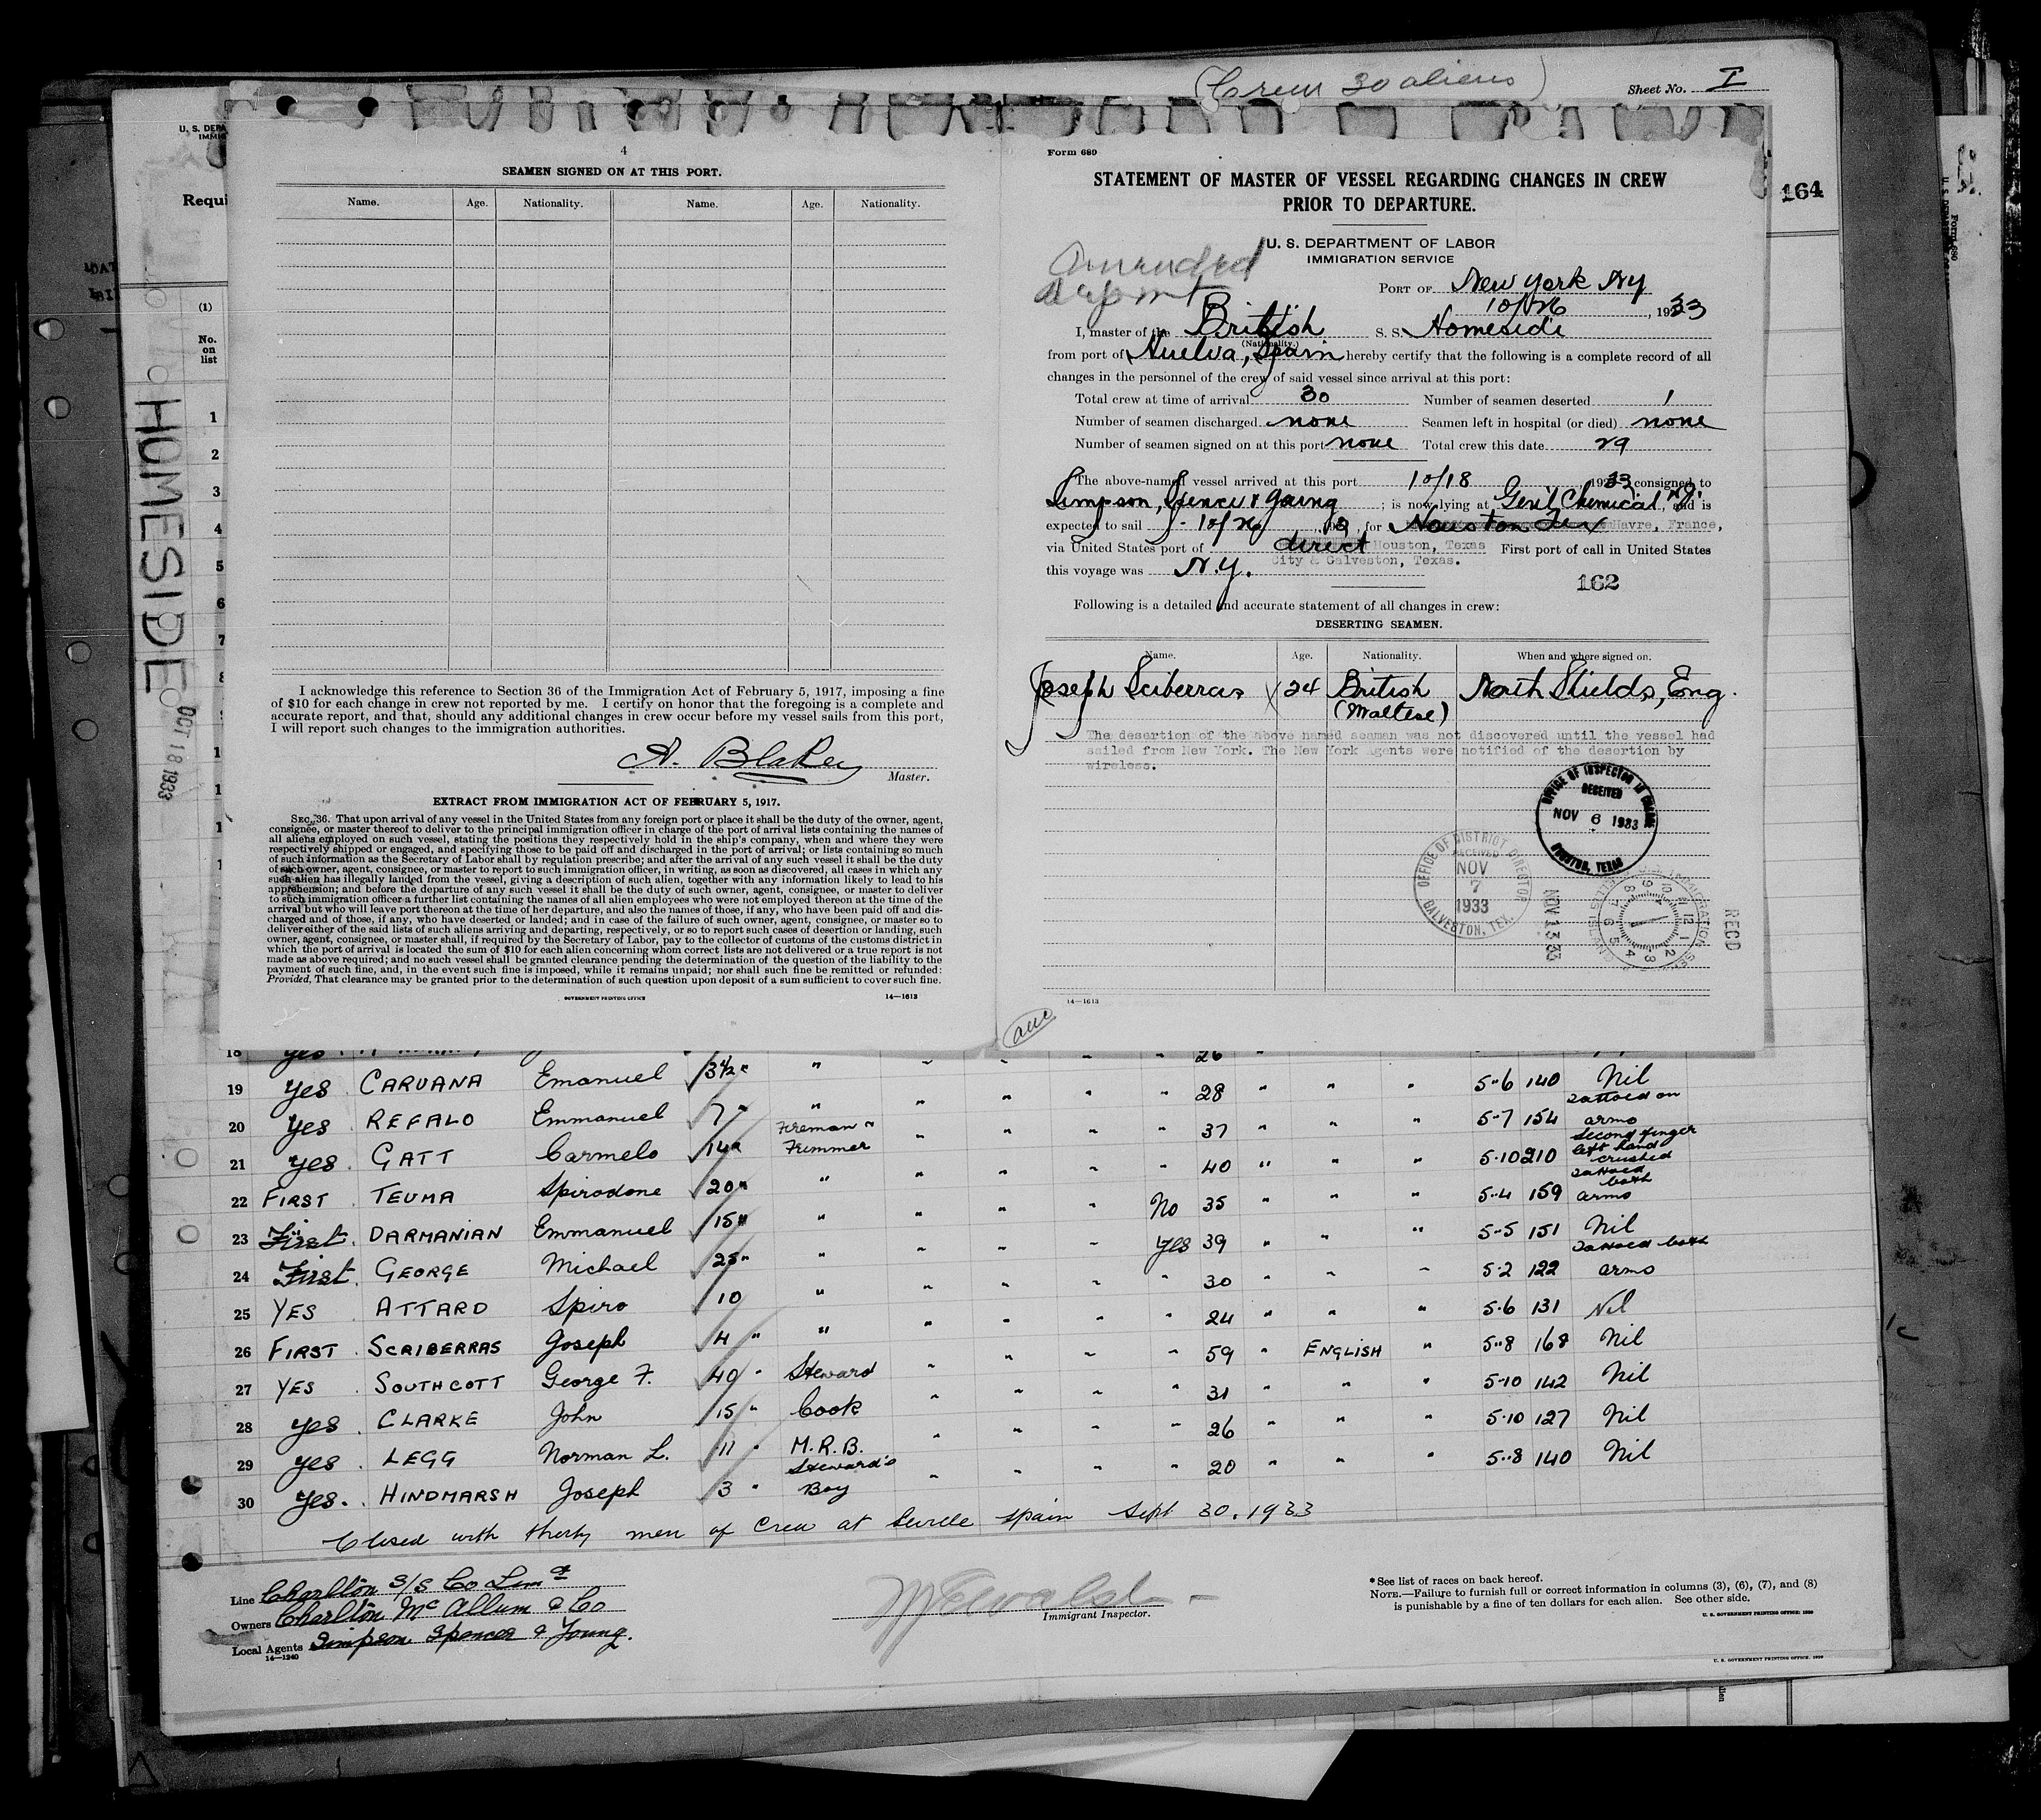 (Crew 30 aliens)
Sheet No. I
164
U. S. DEPA
IMMIG
Requi
(1)
No.
on
list
1
2
3
4
5
6
7
8
HOMESIDE
OCT 18 1933
4
SEAMEN SIGNED ON AT THIS PORT.
Name. Age. Nationality. Name. Age. Nationality.
I acknowledge this reference to Section 36 of the Immigration Act of February 5, 1917, imposing a fine
of $10 for each change in crew not reported by me. I certify on honor that the foregoing is a complete and
accurate report, and that, should any additional changes in crew occur before my vessel sails from this port,
I will report such changes to the immigration authorities.
A. Blakey
Master.
EXTRACT FROM IMMIGRATION ACT OF FEBRUARY 5, 1917.
SEC. 36. That upon arrival of any vessel in the United States from any foreign port or place it shall be the duty of the owner, agent,
consignee, or master thereof to deliver to the principal immigration officer in charge of the port of arrival lists containing the names of
all aliens employed on such vessel, stating the positions they respectively hold in the ship's company, when and where they were
respectively shipped or engaged, and specifying those to be paid off and discharged in the port of arrival; or lists containing so much
of such information as the Secretary of Labor shall by regulation prescribe; and after the arrival of any such vessel it shall be the duty
of such owner, agent, consignee, or master to report to such immigration officer, in writing, as soon as discovered, all cases in which any
such alien has illegally landed from the vessel, giving a description of such alien, together with any information likely to lead to his
apprehension; and before the departure of any such vessel it shall be the duty of such owner, agent, consignee, or master to deliver
to such immigration officer a further list containing the names of all alien employees who were not employed thereon at the time of the
arrival but who will leave port thereon at the time of her departure, and also the names of those, if any, who have been paid off and dis-
charged and of those, if any, who have deserted or landed; and in case of the failure of such owner, agent, consignee, or master so to
deliver either of the said lists of such aliens arriving and departing, respectively, or so to report such cases of desertion or landing, such
owner, agent, consignee, or master shall, if required by the Secretary of Labor, pay to the collector of customs of the customs district in
which the port of arrival is located the sum of $10 for each alien concerning whom correct lists are not delivered or a true report is not
made as above required; and no such vessel shall be granted clearance pending the determination of the question of the liability to the
payment of such fine, and, in the event such fine is imposed, while it remains unpaid; nor shall such fine be remitted or refunded:
Provided, That clearance may be granted prior to the determination of such question upon deposit of a sum sufficient to cover such fine.
GOVERNMENT PRINTING OFFICE 14—1613
Form 689
STATEMENT OF MASTER OF VESSEL REGARDING CHANGES IN CREW
PRIOR TO DEPARTURE.
U. S. DEPARTMENT OF LABOR
IMMIGRATION SERVICE
Amended
report
PORT OF New York NY
10/26, 1933
I, master of the British S. S. Homeside
(Nationality.)
from port of Huelva, Spain hereby certify that the following is a complete record of all
changes in the personnel of the crew of said vessel since arrival at this port:
Total crew at time of arrival 30 Number of seamen deserted 1
Number of seamen discharged none Seamen left in hospital (or died) none
Number of seamen signed on at this port none Total crew this date 29
The above-named vessel arrived at this port 10/18, 1933 consigned to
Simpson, Spence & Young; is now lying at Gen'l Chemical, N.J. and is
expected to sail 10/26, 193 for Houston Tex Havre, France,
via United States port of direct Houston, Texas First port of call in United States
City & Galveston, Texas.
this voyage was N.Y.
162
Following is a detailed and accurate statement of all changes in crew:
DESERTING SEAMEN.
Name. Age. Nationality. When and where signed on.
Joseph Sciberras 24 British North Shields, Eng.
(Maltese)
The desertion of the above named seaman was not discovered until the vessel had
sailed from New York. The New York Agents were notified of the desertion by
wireless.
OFFICE OF INSPECTOR IN CHARGE
RECEIVED
NOV 6 1933
HOUSTON, TEXAS
OFFICE OF DISTRICT DIRECTOR
RECEIVED
NOV
7
1933
GALVESTON, TEX.
NOV 13 33
RECD
14—1613
18 yes 26 "
19 yes CARUANA Emanuel 3½ " " " " " " 28 " " " 5-6 140 Nil
20 yes REFALO Emmanuel 7 " " " " " " 37 " " " 5-7 154 Tattoed on arms
21 yes GATT Carmelo 14 " Fireman & Trimmer " " " " 40 " " " 5-10 210 second finger left hand crushed
22 FIRST TEUMA Spirodone 20 " " " " " No 35 " " " 5-4 159 Tattoed both arms
23 First DARMANIAN Emmanuel 15 " " " " " yes 39 " " " 5-5 151 Nil
24 First GEORGE Michael 25 " " " " " " 30 " " " 5-2 122 Tattoed both arms
25 YES ATTARD Spiro 10 " " " " " 24 " " " 5-6 131 Nil
26 FIRST SCRIBERRAS Joseph 4 " " " " " " 59 " ENGLISH " 5-8 168 Nil
27 YES SOUTHCOTT George F. 40 " Steward " " " " 31 " " " 5-10 142 Nil
28 yes CLARKE John 15 " Cook " " " " 26 " " " 5-10 127 Nil
29 yes LEGG Norman L. 11 " M.R.B. " " " " 20 " " " 5-8 140 Nil
30 yes HINDMARSH Joseph 3 " Steward's Boy
Closed with thirty men of crew at Seville Spain Sept 30. 1933
Line Charlton S/S Co Limd
Owners Charlton McAllum & Co
Local Agents Simpson Spencer & Young.
14—1240
Immigrant Inspector.
* See list of races on back hereof.
NOTE.—Failure to furnish full or correct information in columns (3), (6), (7), and (8)
is punishable by a fine of ten dollars for each alien. See other side.